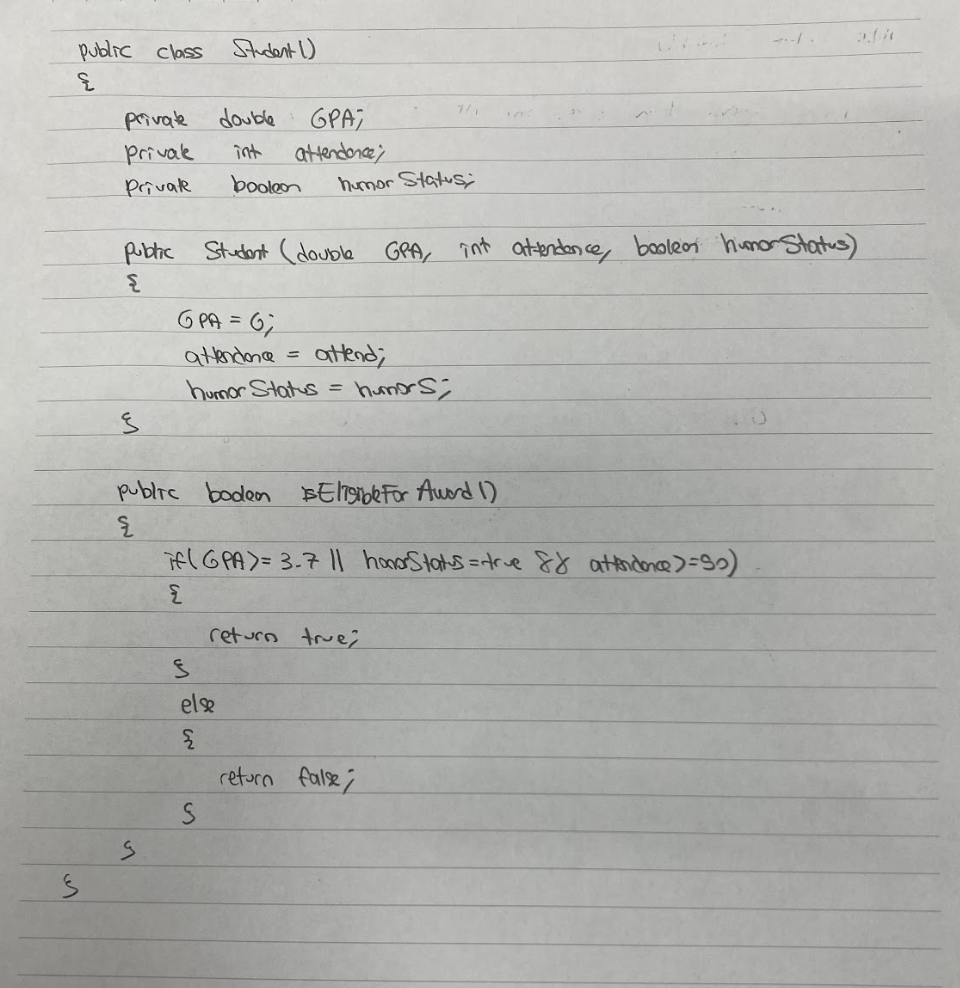 public class Student()
{
private double GPA;
private int attendance;
private boolean humorStatus;
public Student (double GPA, int attendance, boolean humorStatus)
{
GPA = G;
attendance = attend;
humorStatus = humorS;
}
public boolean isEligibleForAward()
{
if(GPA>= 3.7 || honorStatus=true && attendance>=90)
{
return true;
}
else
{
return false;
}
}
}